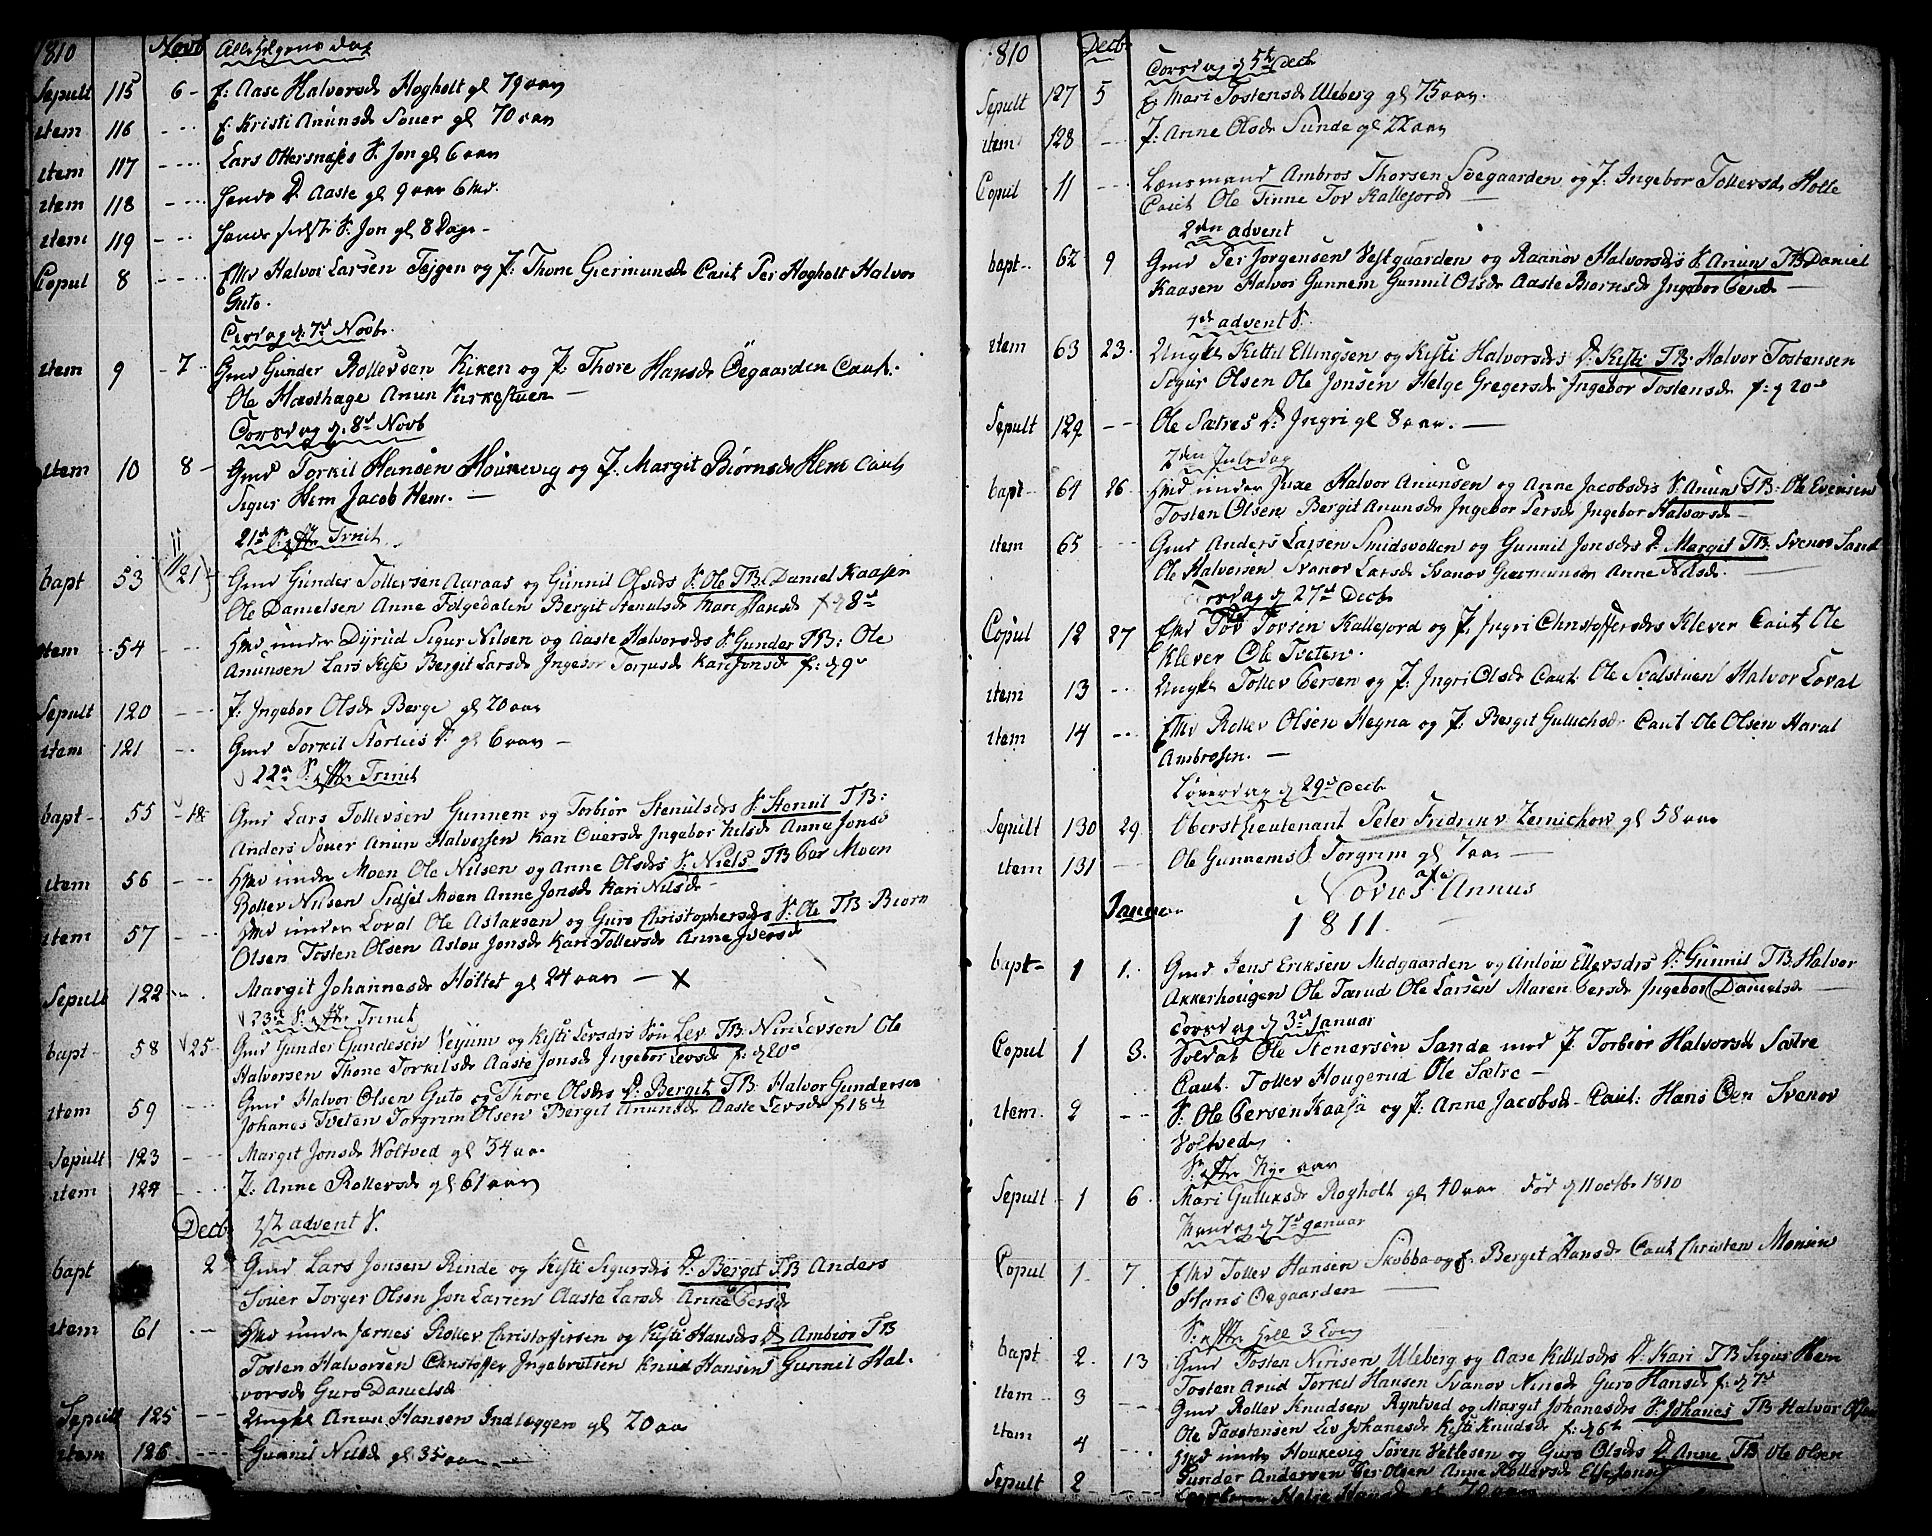 1810 Novb Allehelgens dag
Sepult 115 6 - E: Aase Halvorsd Hogholt gl 79 aar
item 116 --- E: Kristi Anunsd Souer gl 70 aar
item 117 --- Lars Ottersnæses S. Jon gl 6 aar
item 118 --- D. Aaste gl 9 aar 6 Md.
item 119 --- S. Jon gl 8 Dage -
Copul 8 --- Ekr Halvor Larsen Tejgen og P: Thone Giermunsd Caut Per Hogholt Halvor
Guto.
Onsdag d. 7d Novb.
item 9 - 7 - Gmd Gunder Rollevsen Kiken og P. Thore Hansd Øegaarden Caut:
Ole Hæsthage Anun Kirkestuen -
Torsdag d. 8d Novb
item 10 8 - Gmd Torkil Hansen Houkevig og P. Margit Biørnsd Hem Caut
Sigur Hem Jacob Hem. -
21d S. efter Trinit
bapt 53 11 (21) Gmd Gunder Tollefsen Aaraas og Gunnil Olsdrs S. Ole TB. Daniel Kaasen
Ole Danielsen Anne Folgedalen Bergit Stenulsd Mari Hansd f. d 8d
item 54 --- Hmd under Dyrud Sigur Nilsen og Aaste Halvorsdrs S. Gunder TB: Ole
Anunsen Lars Kise Bergit Larsd Ingebor Torjusd Kari Jonsd f: d 9
Sepult 120 --- P. Ingebor Olsd Berge gl 20 aar
item 121 --- Gmd Torkil D. gl 6 aar -
22d S. efter Trinit
bapt - 55 - 18 Gmd Lars Tollevsen Gunnem og Torbior Stenulsdrs S. Stenul TB:
Anders Souer Anun Halvorsen Kari Eversd Ingebor Anne Jonsd
item 56 --- Hmd under Moen Ole Nilsen og Anne Olsdrs S. Niels TB Per Moen
Rollev Nilsen Sidsel Moen Anne Jonsd Kari Nilsd -
item 57 --- Hmd under Loval Ole Aslaksen og Guro Christophersdrs S. Ole TB Biørn
Olsen Tosten Olsen Aslou Jonsd Kari Tollevsd Anne Iversd
Sepult 122 --- Margit Johannesd Holtet gl 24 aar - X
23d S. efter Trinit
bapt - 58 25 - Gmd Gunder Gundersen Vejum og Kisti Levsdrs Søn Lev TB. Niri Levsen Ole
Halvorsen Thone Torkilsd Aaste Jonsd Ingebor Levsd f: d 20
item 59 --- Gmd Halvor Olsen Guto og Thore Olsdrs D. Bergit TB: Halvor Gundersen
Johanes Tveten Torgrim Olsen Bergit Anunsd Aaste Levsd f 18d
Sepult 123 --- Margit Jonsd Woltved gl 34 aar
item 124 --- P: Anne Rollevsd gl 61 aar
Decb advent S.
bapt 2 Gmd Lars Jonsen Rinde og Kisti Sigursdrs D. Bergit TB Anders
Souer Torger Olsen Jon Larsen Aaste Larsd Anne Persd
item 61 --- Hmd under Jernes Rollev Christoffersen og Kisti Hansdrs D. Ambior TB
Tosten Halvorsen Christoffer Ingebretsen Knud Hansen Gunnil Hal-
vorsd Guro Danielsd
Sepult 125 --- Ungkl Anun Hansen Indlæggen gl 20 aar
item 126 --- Gunnil Nilsd gl 35 aar -
1810 Decb Torsdag d 5te Decb
Sepult 127 5 E Mari Tostensd Uleberg gl 75 aar.
item 128 --- P. Anne Olsd Sunde gl 22 aar
Copul 11 --- Lænsmand Ambros Thorsen Soegaarden og P. Ingebor Tollevsd Holle
Caut Ole Tinne Tor Kallejord -
2den advent
bapt - 62 9 Gmd Per Jorgensen Vestgaarden og Raanov Halvorsdrs S. Anun TB Daniel
Kaasen Halvor Gunnem Gunnil Olsd Aaste Biornsd Ingebor Persd -
4de advent S.
item 63 23. Ungkl Kittil Ellingsen og Kisti Halvorsdrs D. Kisti TB. Halvor Tostensen
Sigur Olsen Ole Jonsen Helge Gregersd Ingebor Tostensd f: d 20
Sepult 129 --- Ole Sætres D. Ingri gl 8 aar. -
2den Juledag
bapt - 64 26. Hmd under Juxe Halvor Anunsen og Anne Jacobsdrs S. Anun TB: Ole Evensen
Tosten Olsen Bergit Anunsd Ingebor Persd Ingebor Halvorsd -
item 65 --- Gmd Anders Larsen Smidsvollen og Gunnil Jonsdrs D. Margit TB. Svenov Sand
Ole Halvorsen Svanov Larsd Svanov Giermunsen Anne Nilsd -
Torsdag d 27d Decb
Copul 12 27 Ekr Tov Torsen Kallejord og P. Ingri Christoffersdrs Klever Caut Ole
Klever Ole Tveten.
item 13 --- Ungkl Tollev Persen og P. Ingri Olsd Caut. Ole Svalstuen Halvor Loval
item 14 --- Ekr Rollev Olsen Hegna og P. Bergit Gulichsd Caut Ole Olsen Haral
Ambrosen. -
Løverdag d 29d Decb
Sepult 130 29. Oberstlieutenant Peter Fredric v Zernichow gl 58 aar
item 131 --- Ole Gunnems S. Torgrim gl 7 aar -
Novus Annus
Januar 1811.
bapt - 1 1. Gmd Jens Eriksen Midgaarden og Anlou Ellevsdrs D. Gunnil TB. Halvor
Akkerhougen Ole Tarud Ole Larsen Maren Persd Ingebor Danielsd -
Torsdag d 3d Januar
Copul 1 3. Soldat Ole Stenersen Sanda med P. Torbior Halvorsd Sætre
Caut. Tollev Hougerud Ole Sætre -
item. 2 --- S. Ole Persen Kaasa og P. Anne Jacobsd - Caut: Hans Oen Svenov
Voltved.
S. efter Nye aar
Sepult - 1 6. Mari Guluksd Rogholt gl 40 aar Død d 11 octb 1810
Mandag d 7d Januar
Copul 1. 7. Ekr Tollev Hansen Skobba og P. Berget Hansd Caut Christen Monin
Hans Øegaarden -
S. efter Hell 3 Kong
bapt 2. 13 Gmd Tosten Nirisen Uleberg og Aase Kittilsdrs D. Kari TB Sigur Hem
Tosten Arud Torkil Hansen Svanov Nirisd Guro Hansd f: d 7d
item 3 --- Gmd Rollev Knudsen Ryntved og Margit Johanesdrs S. Johanes TB Halvor Olsen
Ole Taastensen Liv Johanesd Kisti Knudsd f: d 6te
item 4 --- Hmd under Houkevig Søren Vetlesen og Guro Olsdrs D. Anne TB Ole Olsen
Gunder Andersen Per Olsen Anne Rollevsd Else Jonsd
Sepult 2 --- Hansd gl 70 aar